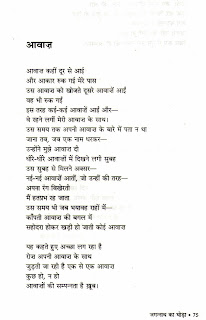 आवाज़
आवाज़ कहीं दूर से आई
और आकर रुक गई मेरे पास
उस आवाज़ को खोजते दूसरी आवाज़ें आई
वह भी रुक गई
इस तरह कई-कई आवाज़ें आई और—
वे रहने लगीं मेरी आवाज़ के साथ।
उस समय तक अपनी आवाज़ के बारे में पता न था
जाना तब, जब एक नाम धरकर—
उन्होंने मुझे आवाज़ दी
धीरे-धीरे आवाज़ों में दिखने लगी सुबह
उस सुबह से मिलने अक्सर—
नई-नई आवाज़ें आतीं, जो उन्हीं की तरह—
अपना रंग बिखेरतीं
मैं हतप्रभ रह जाता
उस समय भी जब भयावह राहों में—
काँपती आवाज़ की बगल में
सहोदरा होकर खड़ी हो जाती कोई आवाज़
यह कहते हुए अच्छा लग रहा है
रोज़ अपनी आवाज़ के साथ
जुड़ती जा रही है एक से एक आवाज़
कुछ हो, न हो
आवाज़ों की सम्पन्नता है ख़ूब।
जगन्नाथ का घोड़ा • 75